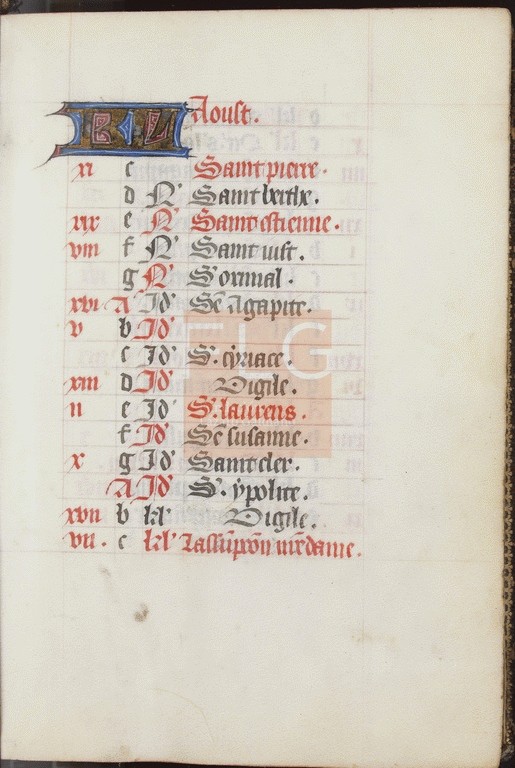 KL Aoust.
xi c Saint pierre.
d N' Saint berthe.
xix e N' Saint estienne.
viii f N' Saint iust.
g N'
xvi A Id' Sē Agapite.
v b Id'
c Id' S. cyriace.
xiii d Id' Vigile.
ii e Id' S. laurens.
f Id' Sē susanne.
x g Id' Saint cler.
A Id' S. ypolite.
xvii b kl' Vigile.
vii. c kl' Lassūpcōn nr̄e dame.
TLG